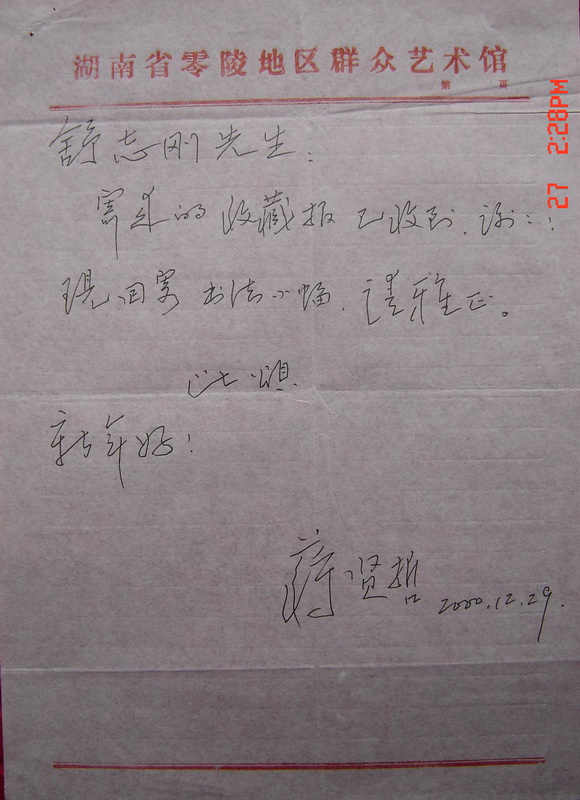 湖南省零陵地区群众艺术馆
第 页
舒志刚先生：
寄来的收藏报已收到，谢谢！
现回寄书法小幅，请雅正。
此颂
新年好！
蒋贤哲 2000.12.29.
27 2:28PM